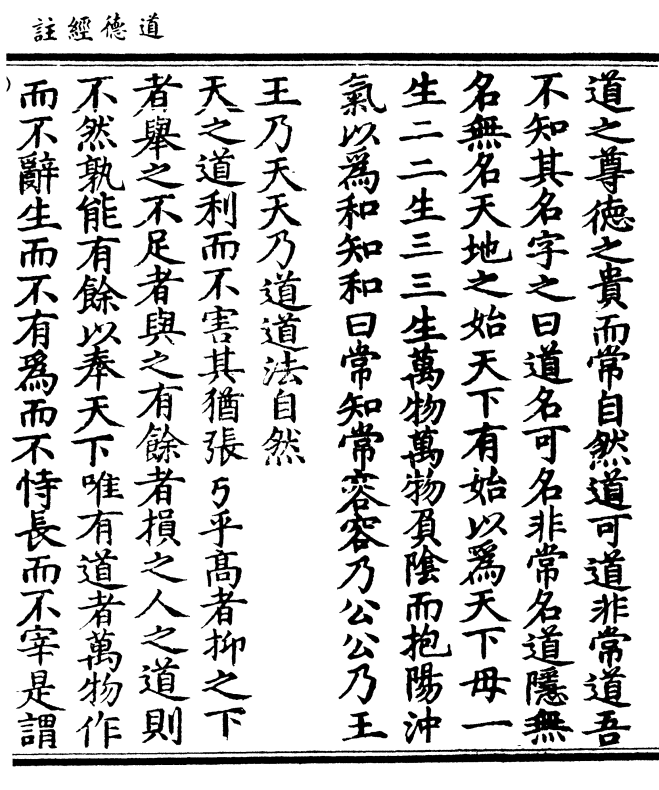 道德經註
道之尊德之貴而常自然道可道非常道吾
不知其名字之曰道名可名非常名道隱無
名無名天地之始天下有始以爲天下母一
生二二生三三生萬物萬物負陰而抱陽沖
氣以爲和知和曰常知常容容乃公公乃王
王乃天天乃道道法自然
天之道利而不害其猶張弓乎高者抑之下
者舉之不足者與之有餘者損之人之道則
不然孰能有餘以奉天下唯有道者萬物作
而不辭生而不有爲而不恃長而不宰是謂